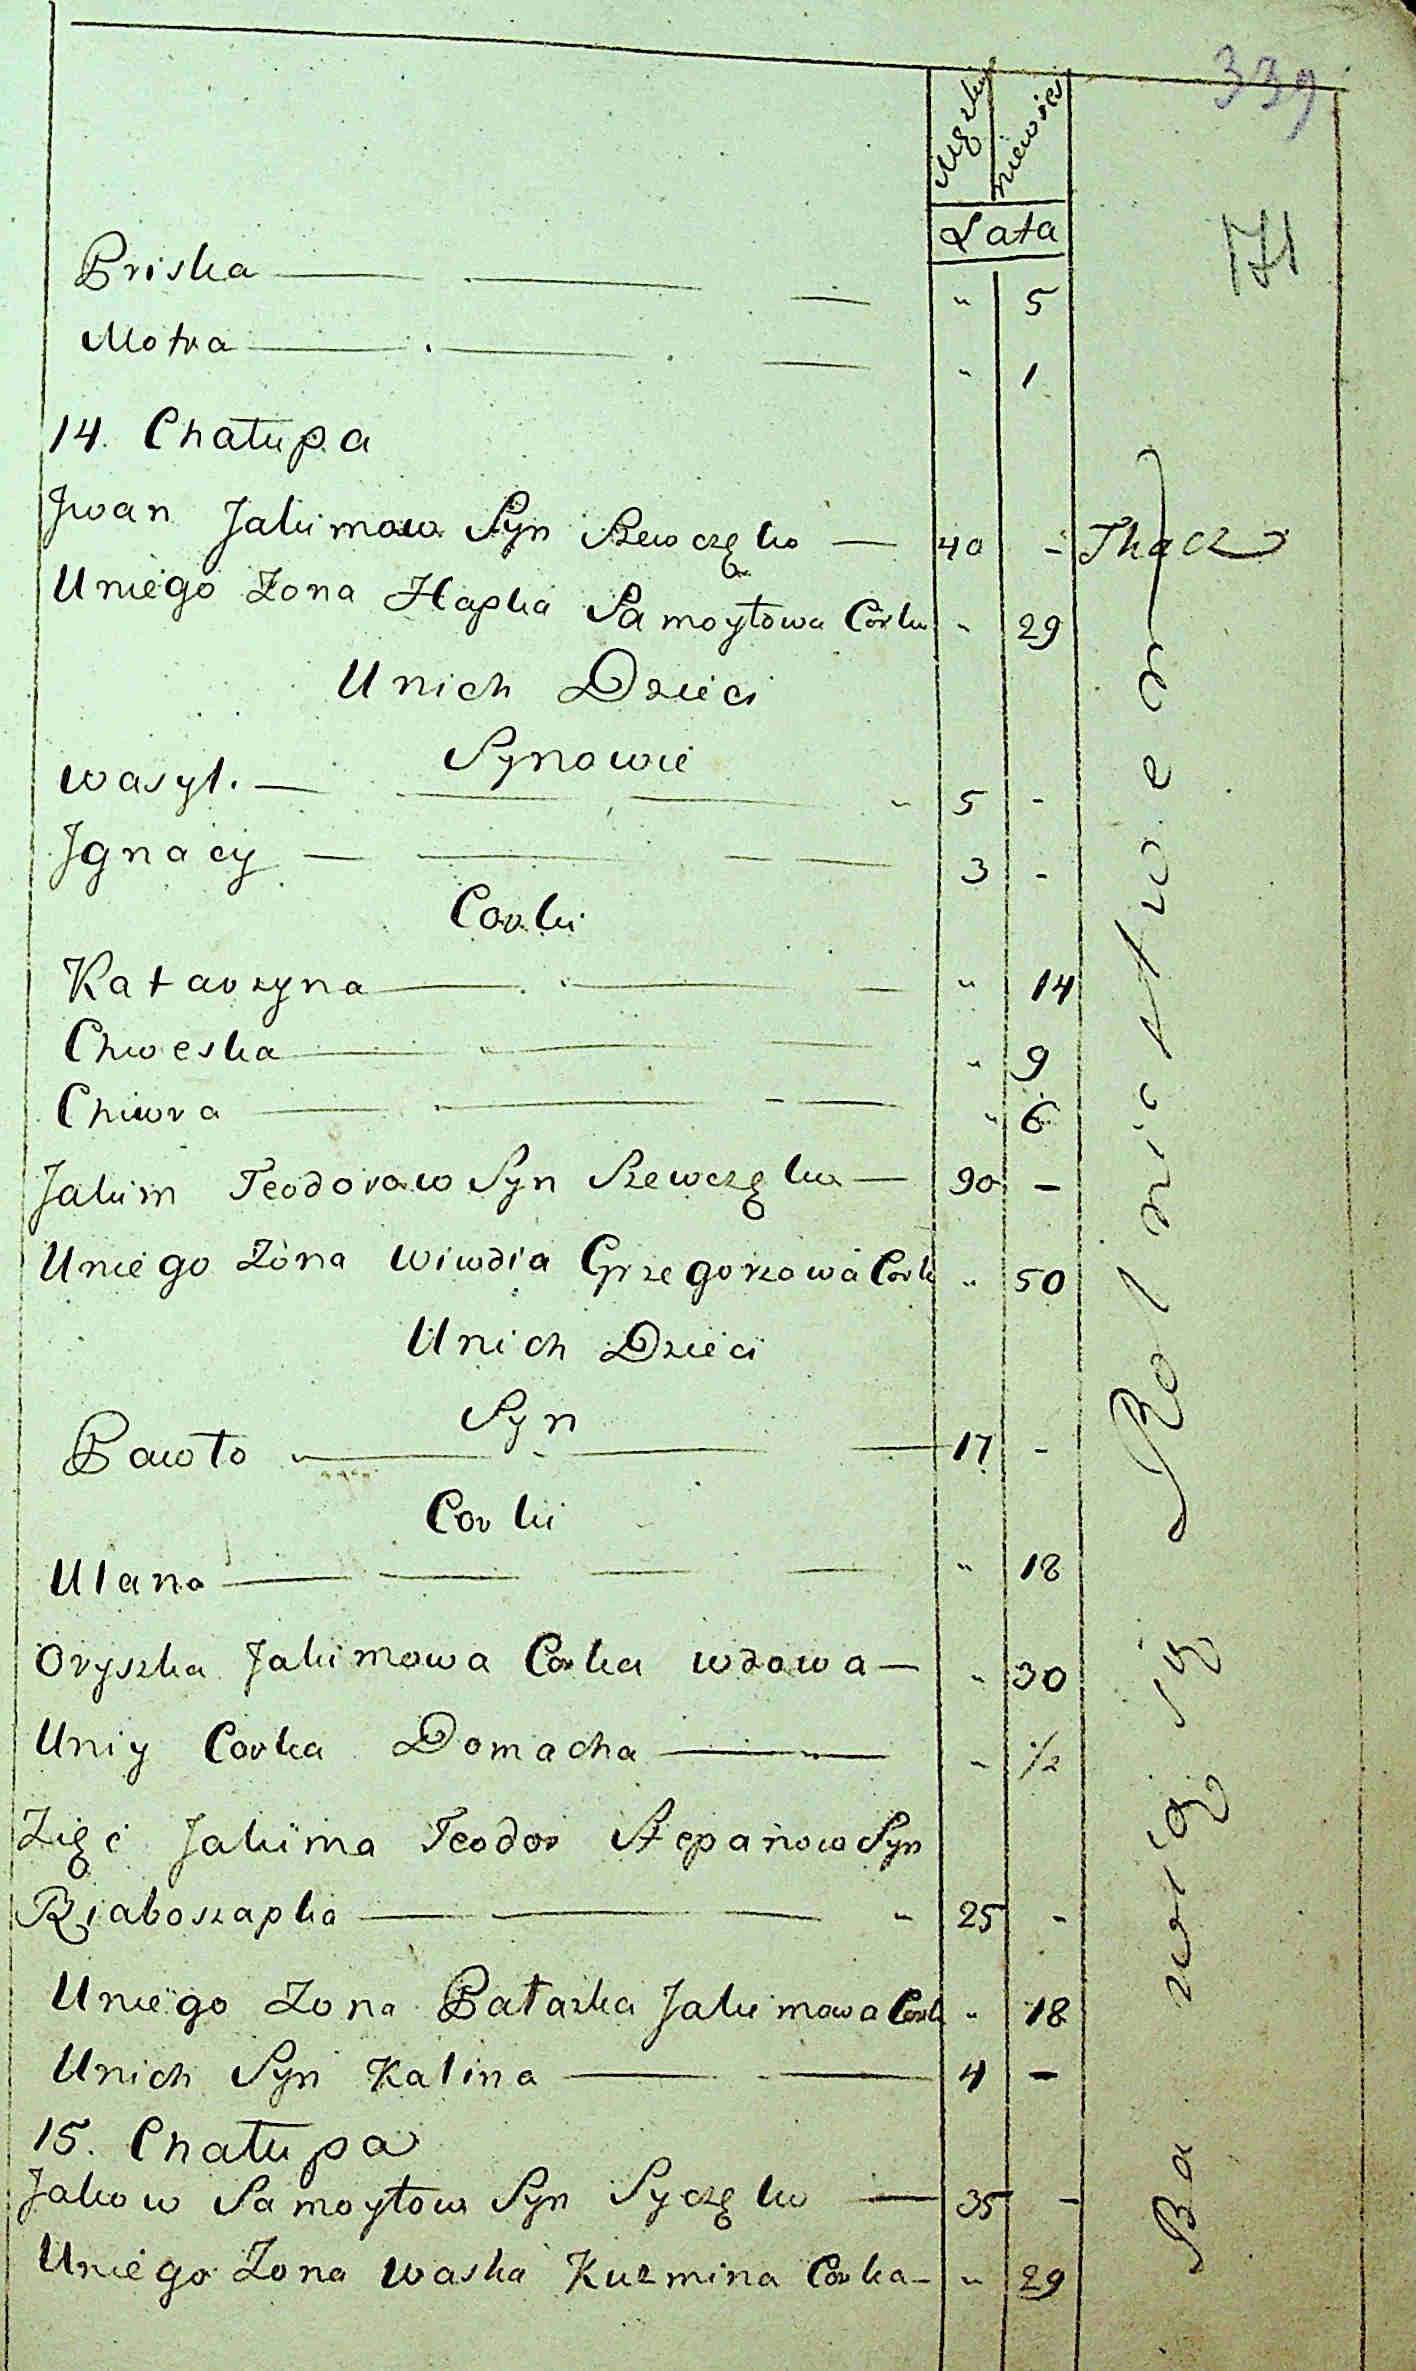 339
171
Męzka niewies
Lata
Priska — " 5
Motra — " 1
14. Chałupa
Jwan Jakimow Syn Szewczęko — 40 - Tkacz
Uniego Żona Hapka Samoyłowa Corka " 29
Unich Dzieci
Synowie
Wasyl. — " 5 -
Jgnacy — 3 -
Corki
Katarzyna — " 14
Chweska — " 9
Chiwra — " 6
Jakim Teodorow Syn Szewczęko — 90 -
Uniego Żona Wiwdia Grzegorzowa Cork " 50
Unich Dzieci
Syn
Pawło — 17 -
Corki
Ulana — " 18
Oryszka Jakimowa Corka wdowa — " 30
Uniy Corka Domacha — " 1/2
Zięć Jakima Teodor Stepanow Syn
Rziaboszapka — " 25 -
Uniego Żona Pałazka Jakimowa Cork " 18
Unich Syn Kalina — 4 -
15. Chałupa
Jakow Samoyłow Syn Syczęko — 35 -
Uniego Żona Waska Kuzmina Corka - " 29
Ba wią się Rolnictwem